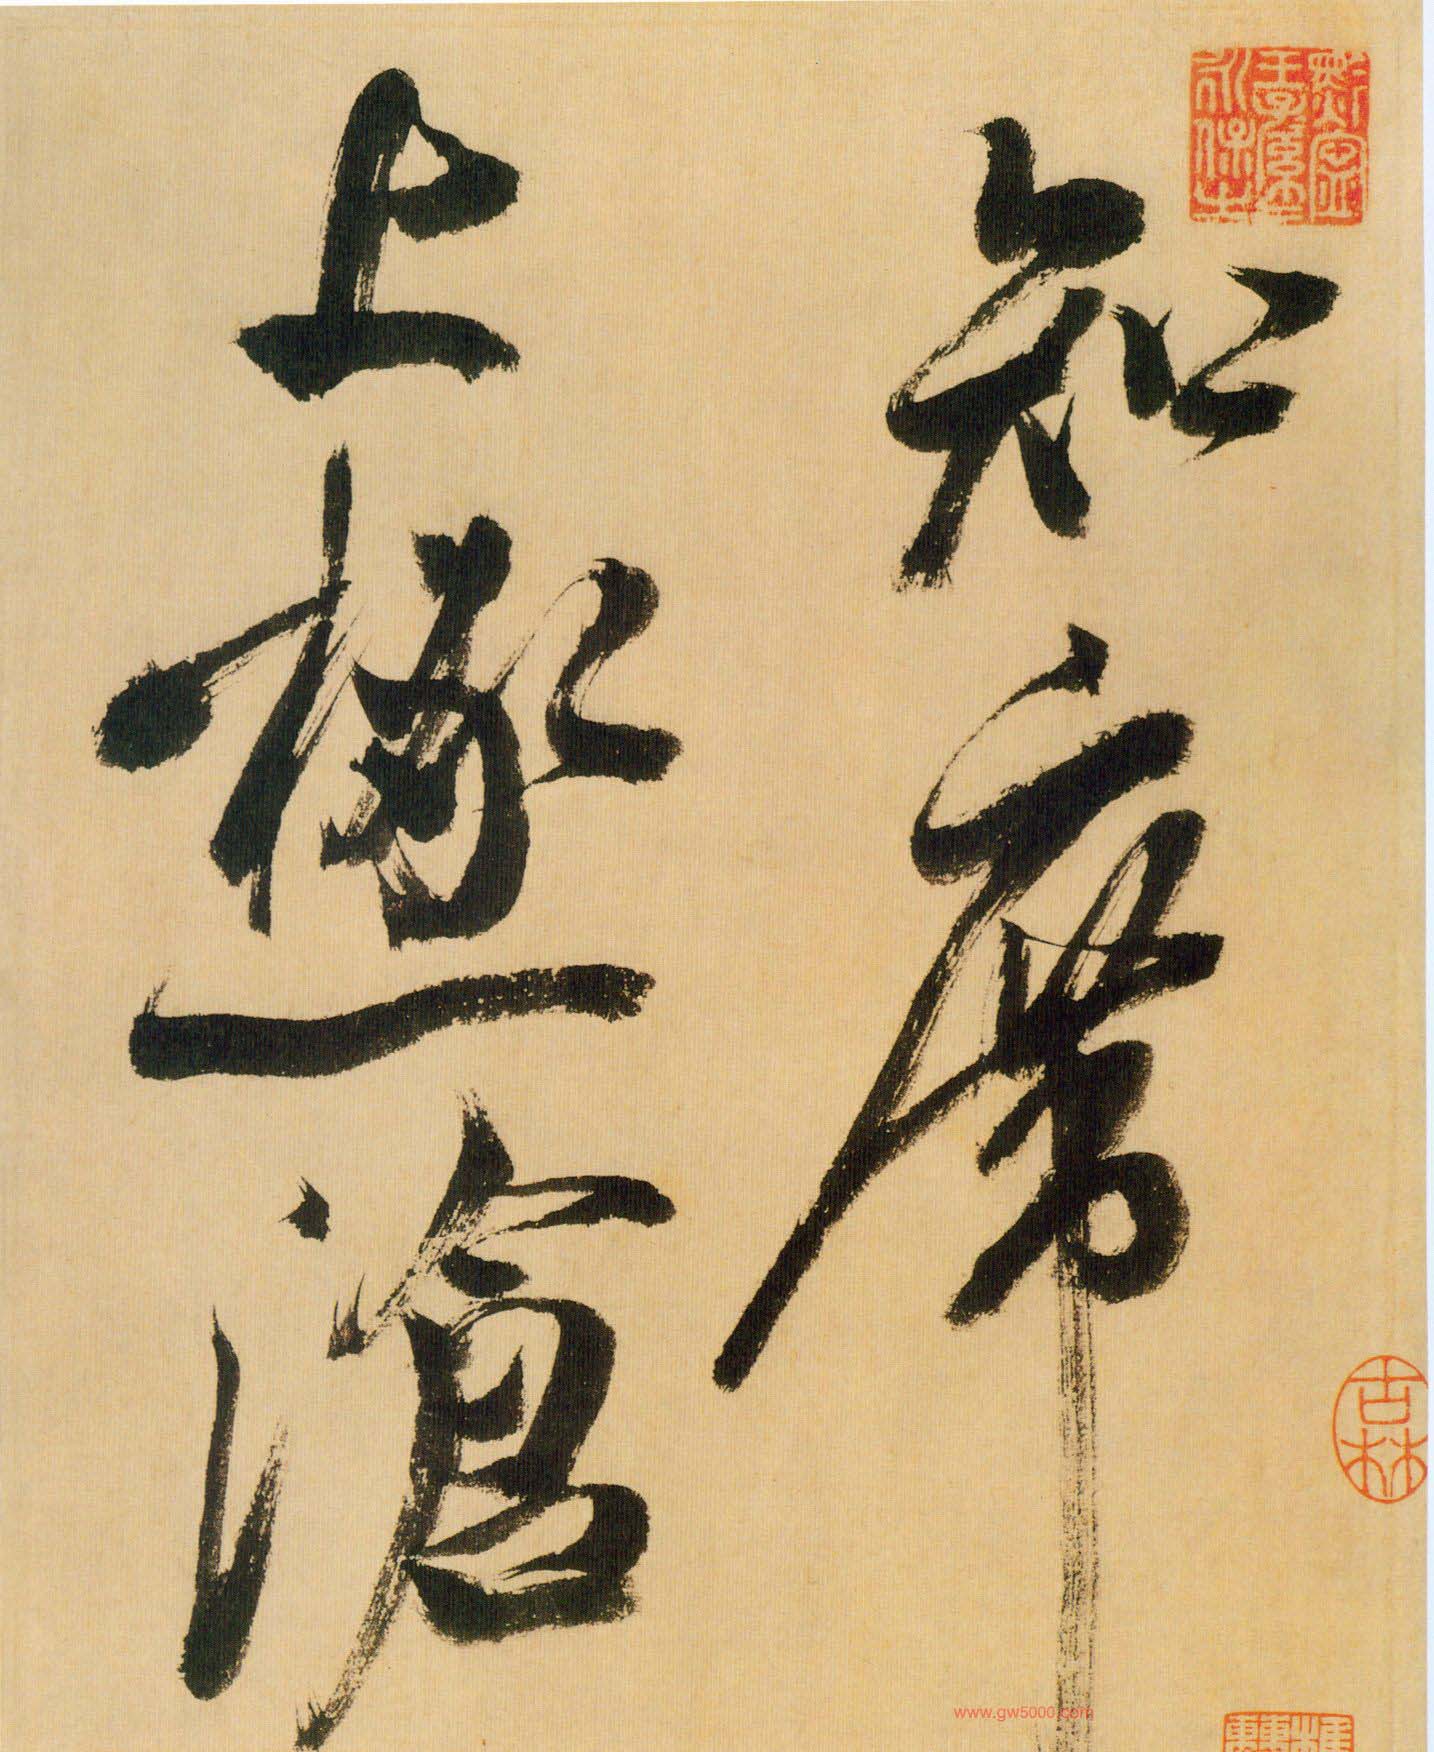 知席
上極滄
古林
www.gw5000.com